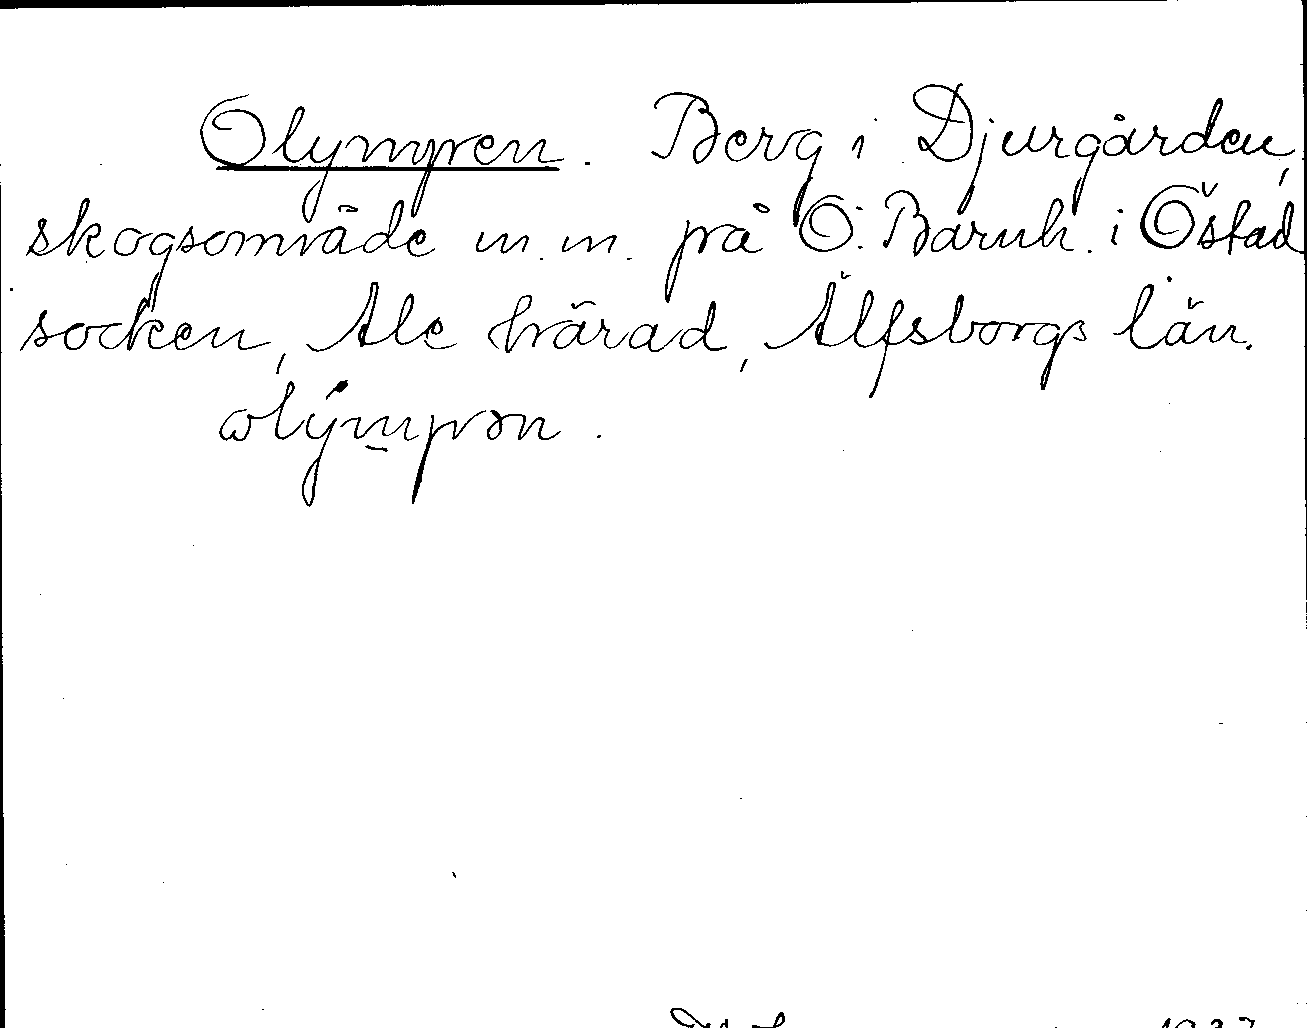 Olympen. Berg i Djurgården,
skogsområde m.m. på Ö. Barnh. i Östad
socken, Ale härad, Älfsborgs län.
ωlým̲pən.
1937